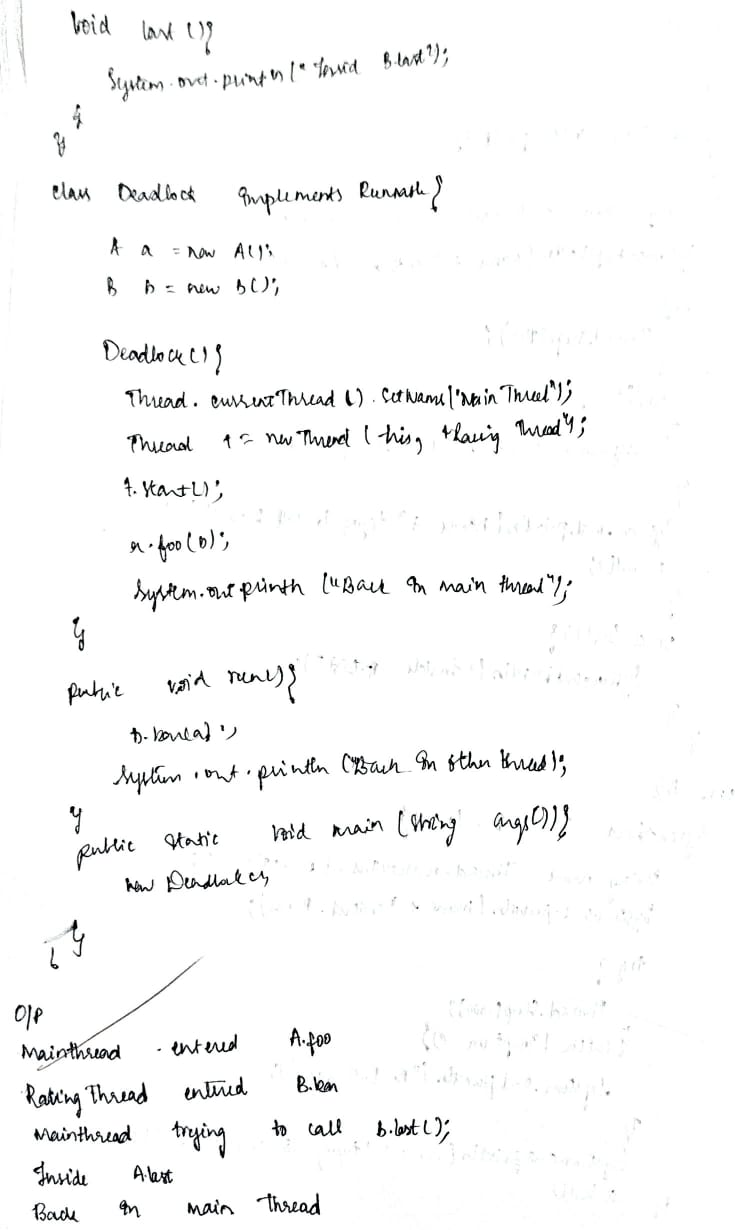 void last (){
System.out.println (" Inside B.last");
}
}
class Deadlock implements Runnable {
A a = new A();
B b = new B();
Deadlock () {
Thread. currentThread (). SetName ("Main Thread");
Thread t = new Thread (this,
t. start();
a.foo(b);
System.out println ("Back in main thread");
}
public void run(){
b.
System . out . println ("Back in other thread);
}
public static void main (String args[]){
new Deadlock
}
O/P
Mainthread - entered A.foo
Thread entered
Mainthread trying to call b.last();
Inside A.last
Back in main Thread